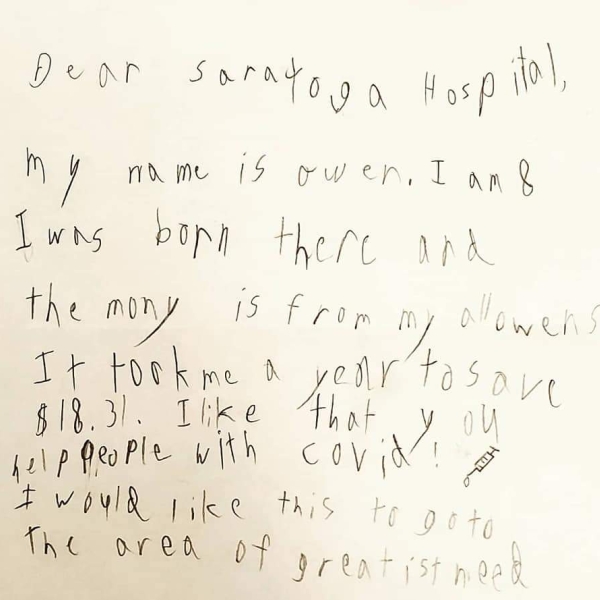 Dear Saratoga Hospital,
My name is owen. I am 8
I was born there and
the mony is from my allowens
It took me a year to save
$18.31. I like that you
help people with covid!
I would like this to go to
The area of greatist need